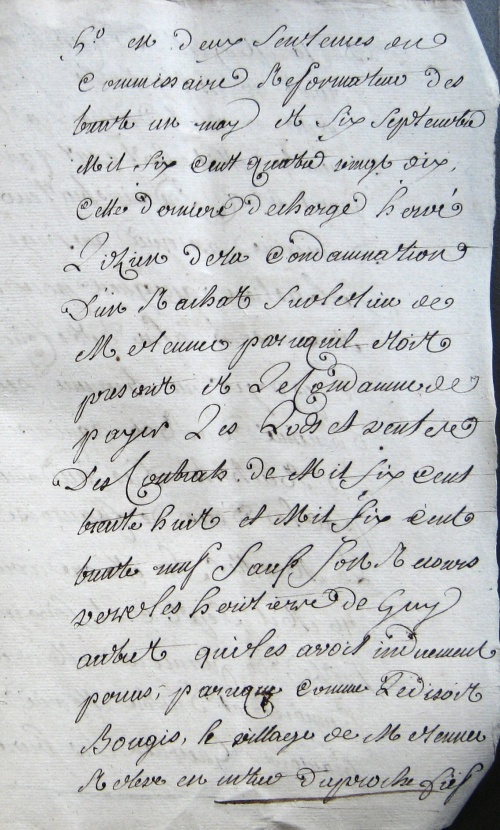 h° en deux sentences du
Commissaire Reformateur des
trente un may et six septembre
Mil six cent quatre vingt dix,
Cette derniere decharge hervé
de la Condamnation
D'un Rachat sur le lieu de
parcequil etoit
present et Le Condamne de
payer Les Lods et ventes
Des Contrats de Mil six cent
trente huit et Mil six cent
trente neuf sauf son Recours
vers les heritiers de Guy
autret qui les avoit induement
perçus, parceque comme Le disoit
Bougis, le village de
Releve en d'aproche fief